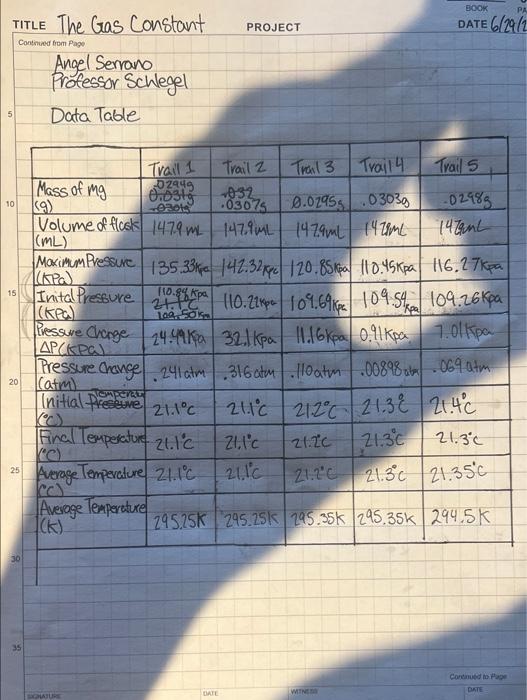 BOOK PA
TITLE The Gas Constant PROJECT DATE 6/29/2
Continued from Page
Angel Serrano
Professor Schlegel
5
Data Table
Trail 1 Trail 2 Trail 3 Trail 4 Trail 5
Mass of mg (g) .0294g 0.031g .0301g .032 .0307g 0.0295g .0303g .0298g
10
Volume of flask (mL) 147.9 mL 147.9mL 147.9mL 147.9mL 147.9mL
Maximum Pressure (KPa) 135.33Kpa 142.32Kpa 120.85Kpa 110.45Kpa 116.27Kpa
15
Inital Pressure (KPa) 110.84Kpa 21.1°C 109.50Kpa 110.22Kpa 109.69Kpa 109.54Kpa 109.26Kpa
Pressure Change ΔP(KPa) 24.49Kpa 32.1Kpa 11.16Kpa 0.91Kpa 7.01Kpa
20
Pressure Change (atm) .241atm .316atm .110atm .00898atm .069atm
Initial Pressure Temperature (°C) 21.1°C 21.1°C 21.2°C 21.3°C 21.4°C
Final Temperature (°C) 21.1°C 21.1°C 21.2°C 21.3°C 21.3°C
25
Average Temperature (°C) 21.1°C 21.1°C 21.2°C 21.3°C 21.35°C
Average Temperature (K) 295.25K 295.25K 295.35K 295.35K 294.5K
30
35
Continued to Page
SIGNATURE DATE WITNESS DATE